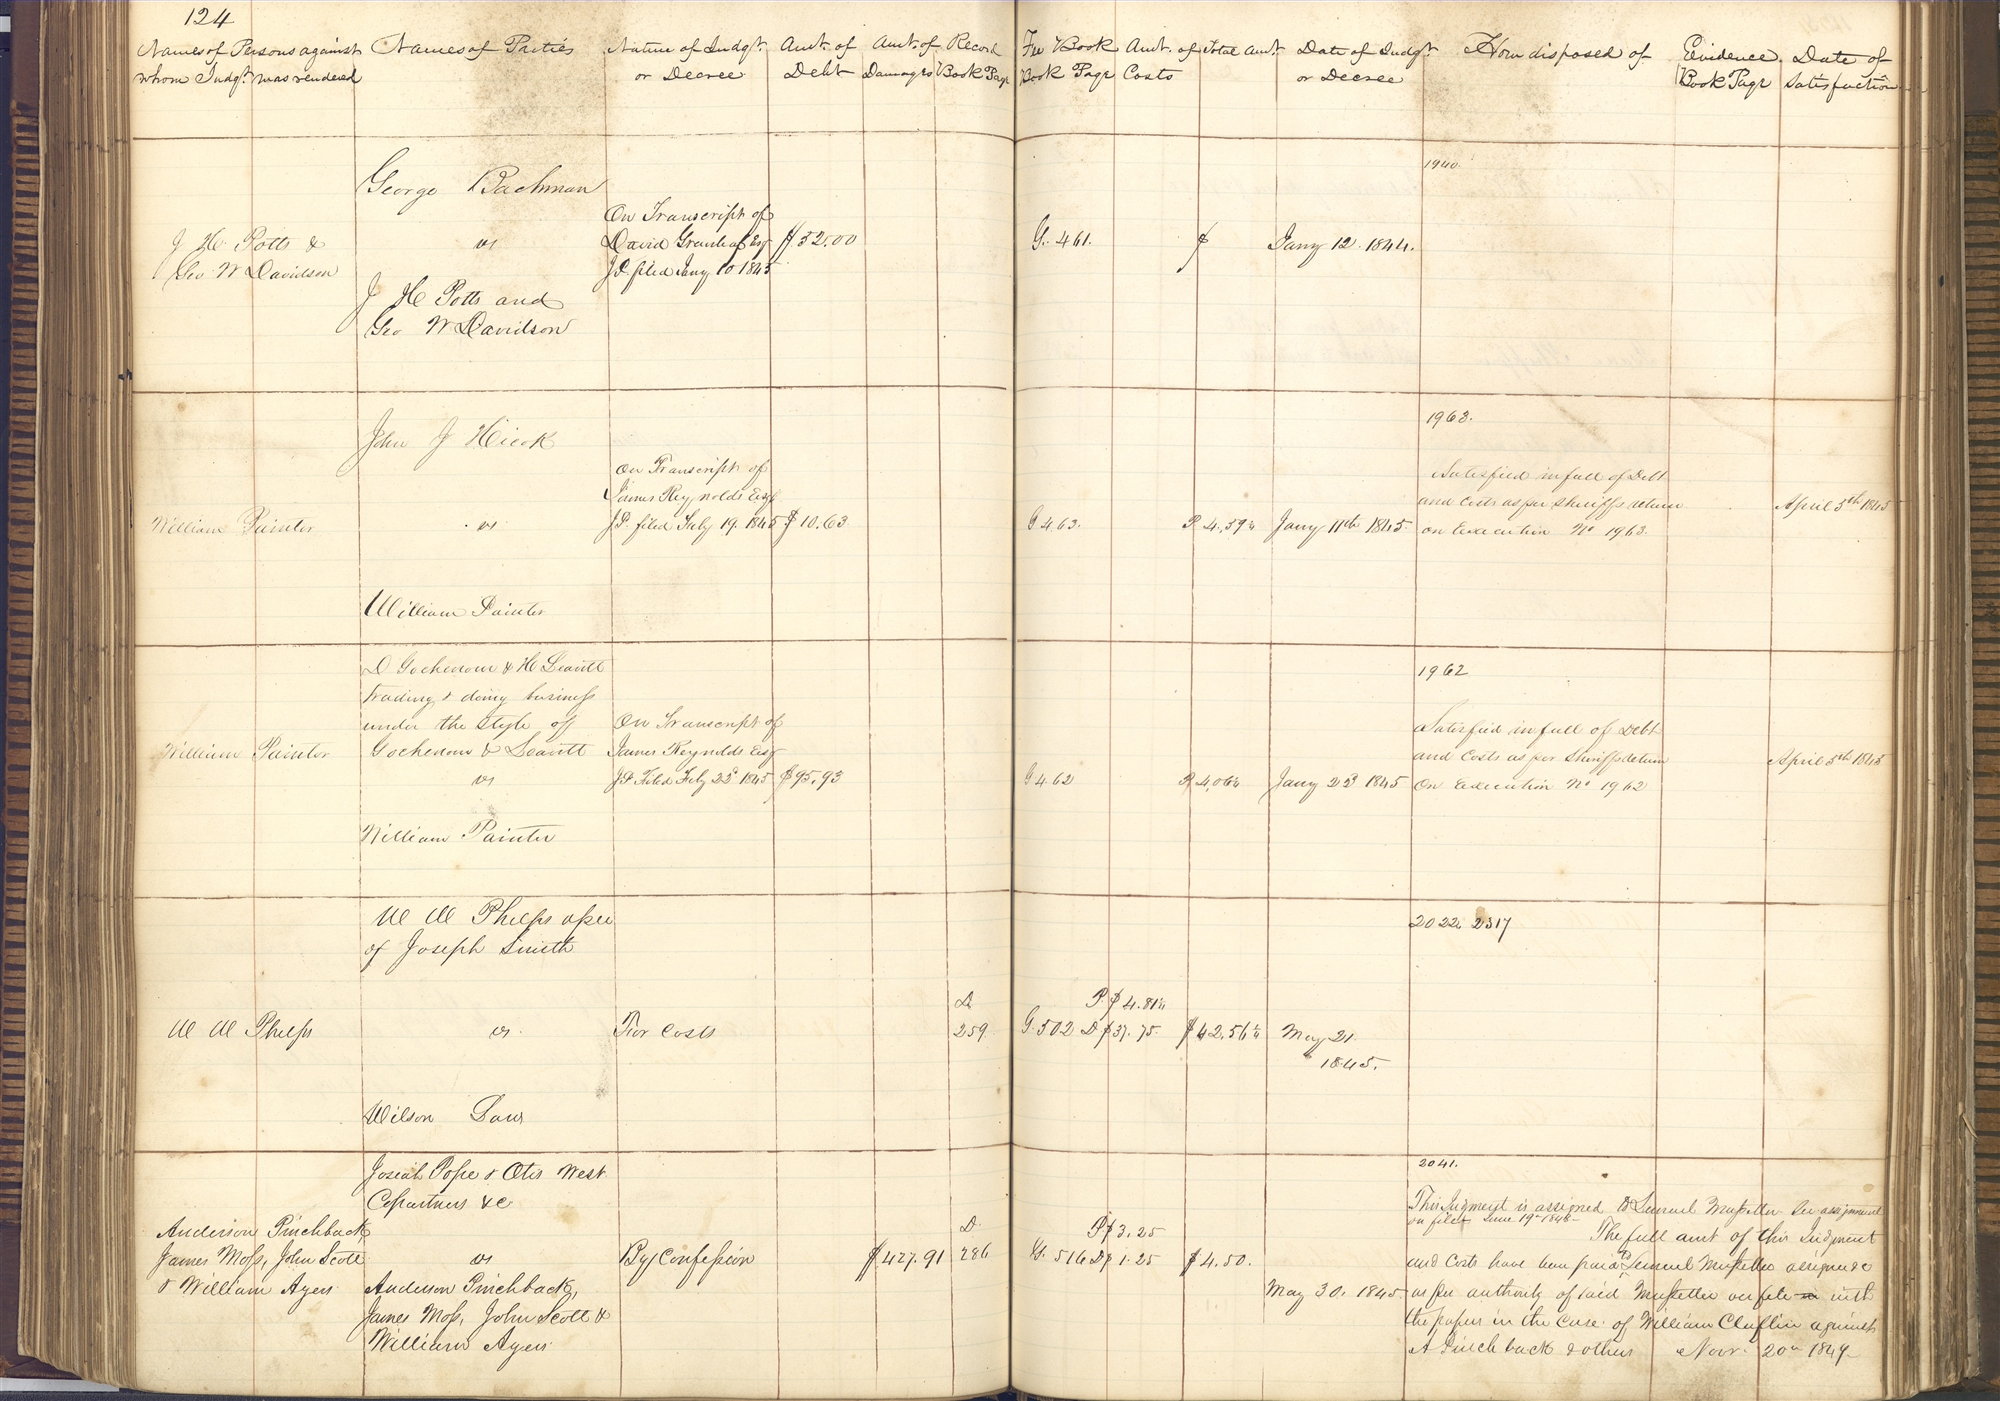 124
Names of Persons against whom Judgt. was rendered
Names of Parties
Nature of Judgt. or Decree
Amt. of Debt
Amt. of Damages
Record Book Page
Fee Book Book Page
Amt. of Costs
Total Amt.
Date of Judgt. or Decree
How disposed of
Evidence. Book Page
Date of Satisfaction
J H Potts &
Geo W Davidson
George Bachman
vs
J H Potts and
Geo W Davidson
On Transcript of
David Greenleaf Esq
J.P. filed Jany 10 1845
$52.00
G. 461.
$
Jany 12. 1844.
1940.
William Painter
John J Hicok
vs
William Painter
On Transcript of
James Reynolds Esq
J.P. filed Feby 19. 1845
$10.63
G 463.
P 4,59¼
Jany 11th 1845.
1963.
Satisfied in full of Debt
and Costs as per Sheriffs return
on Execution No 1963.
April 5th 1845
William Painter
D Gochenour & H Leavitt
trading & doing business
under the style of
Gochenour & Leavitt
vs
William Painter
On Transcript of
James Reynolds Esq
J.P. Filed Feby 23d 1845
$95.93
G 462
P 4,06¼
Jany 23d 1845
1962
Satisfied in full of Debt
and Costs as per Sheriffs return
On Execution No 1962
April 5th 1845
W W Phelps
W W Phelps apee
of Joseph Smith
vs.
Wilson Law
For Costs
D.
259.
G. 502
P. $4.81¼
D $37.75.
$42,56¼
May 21.
1845.
2022 2317
Anderson Pinchback,
James Moss, John Scott
& William Ayers
Josiah Pope & Otis West
Copartners &c
vs
Anderson Pinchback,
James Moss, John Scott &
William Ayers
By Confession
$427.91
D.
286
G. 516
P $3.25
D $1.25
$4.50.
May 30. 1845.
2041.
This Judgment is assigned to Lemuel Mussetter See assignment
on file June 19th 1846
The full amt of this Judgment
and Costs have been paid to Lemuel Mussetter assignee
as per authority of said Mussetter on file with
the papers in the Case of William Claflin against
A Pinchback & others Novr. 20th 1849